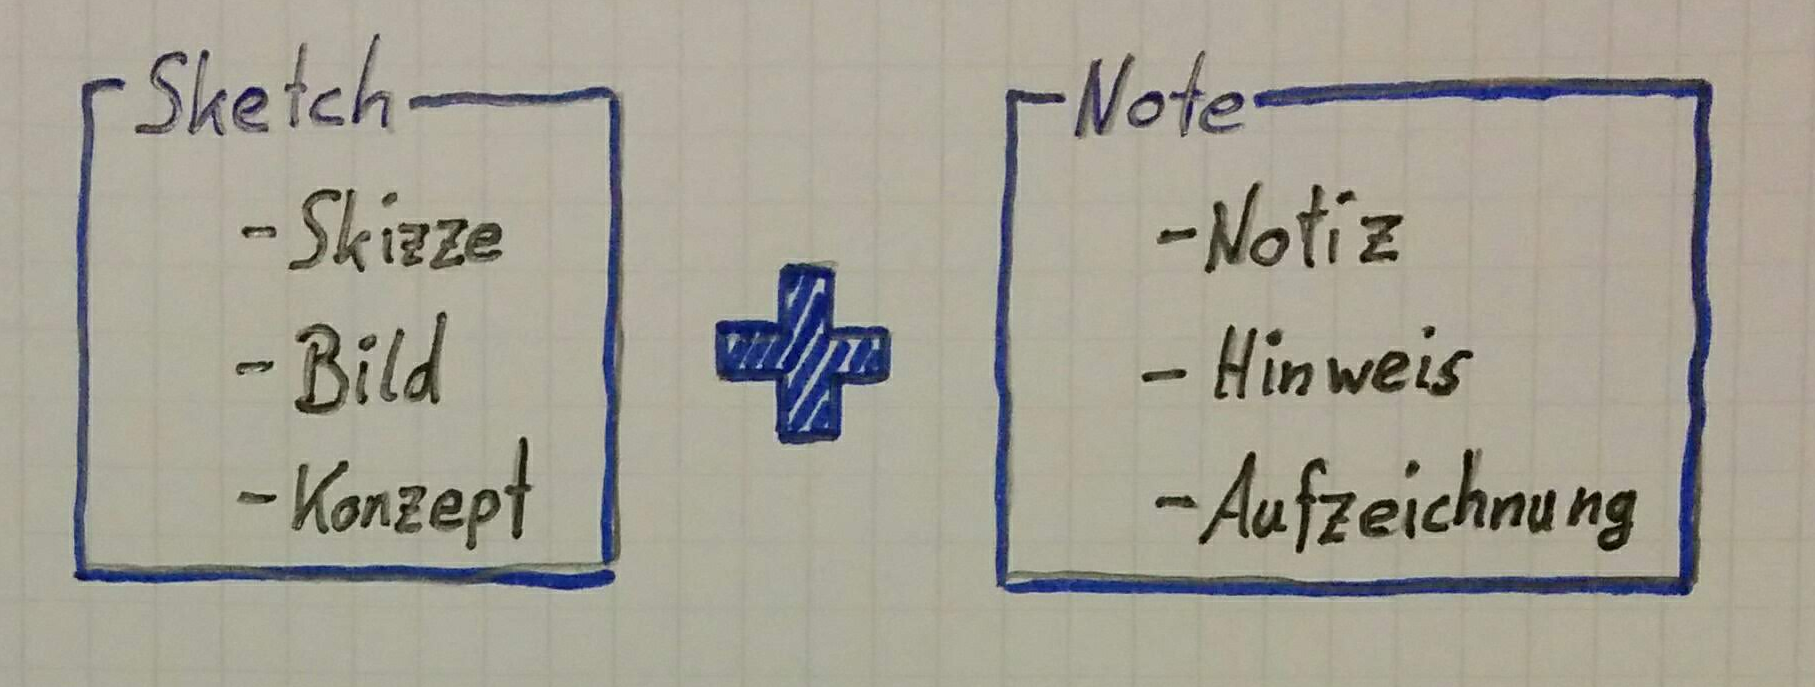 Sketch
- Skizze
- Bild
- Konzept
Note
- Notiz
- Hinweis
- Aufzeichnung